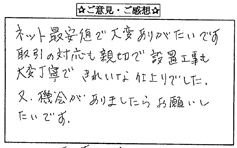 ☆ご意見・ご感想☆
ネット最安値で大変ありがたいです
取引の対応も親切で設置工事も
大変丁寧できれいな仕上りでした。
又、機会がありましたらお願いし
たいです。